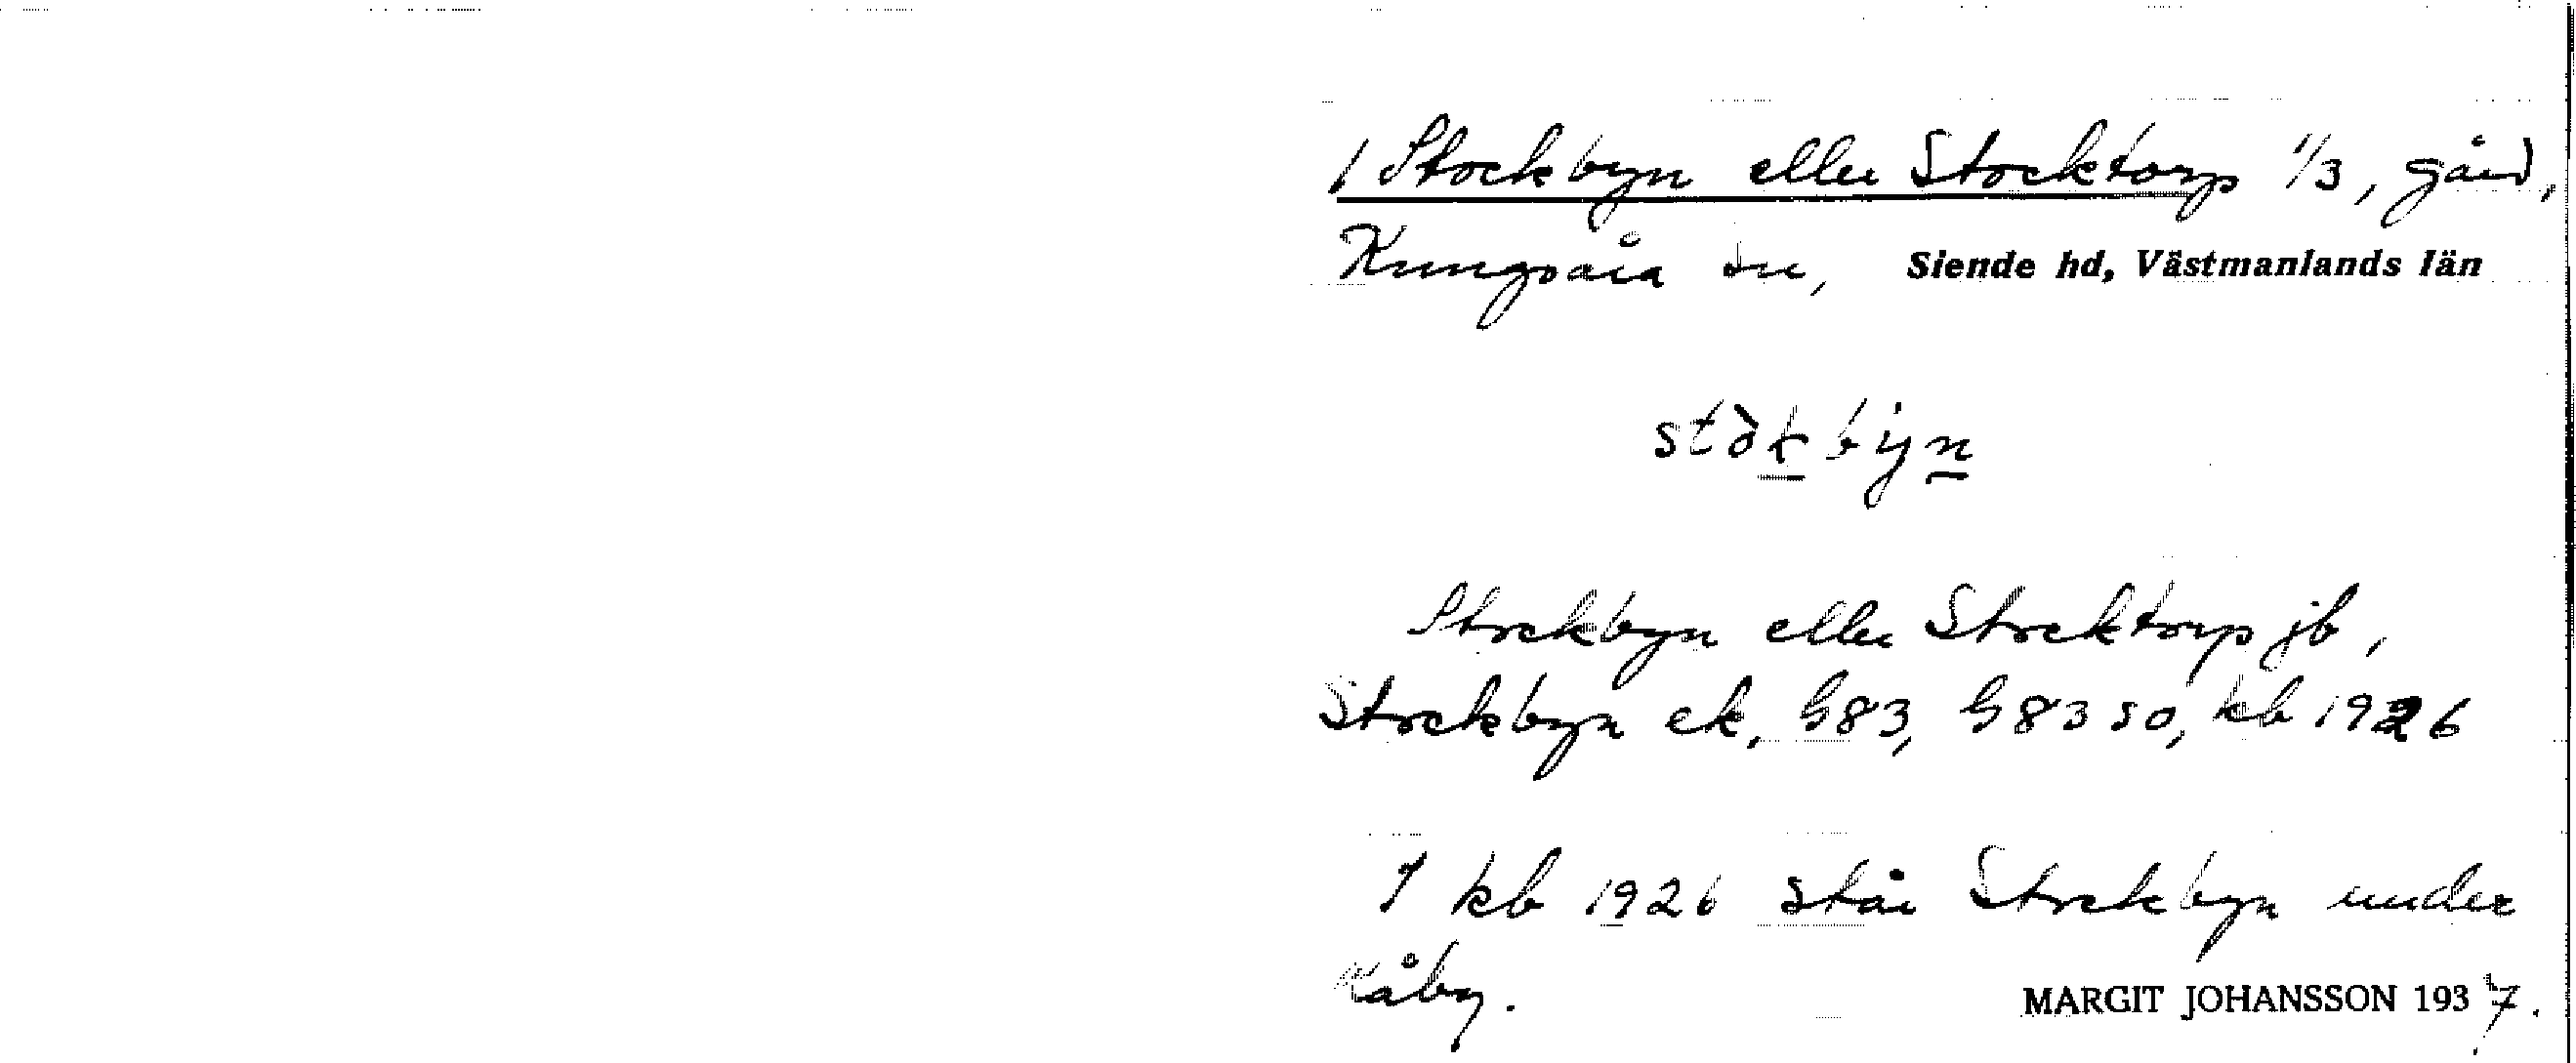 1 Stockbyn eller Stocktorp 1/3, gård,
Kungsåra sn, Siende hd, Västmanlands län
stòkbyn
Stockbyn eller Stocktorp jb,
Stockbyn ek, G83, G83 SO, kb 1926
I kb 1926 står Stockbyn under
Kåby.
MARGIT JOHANSSON 1937.